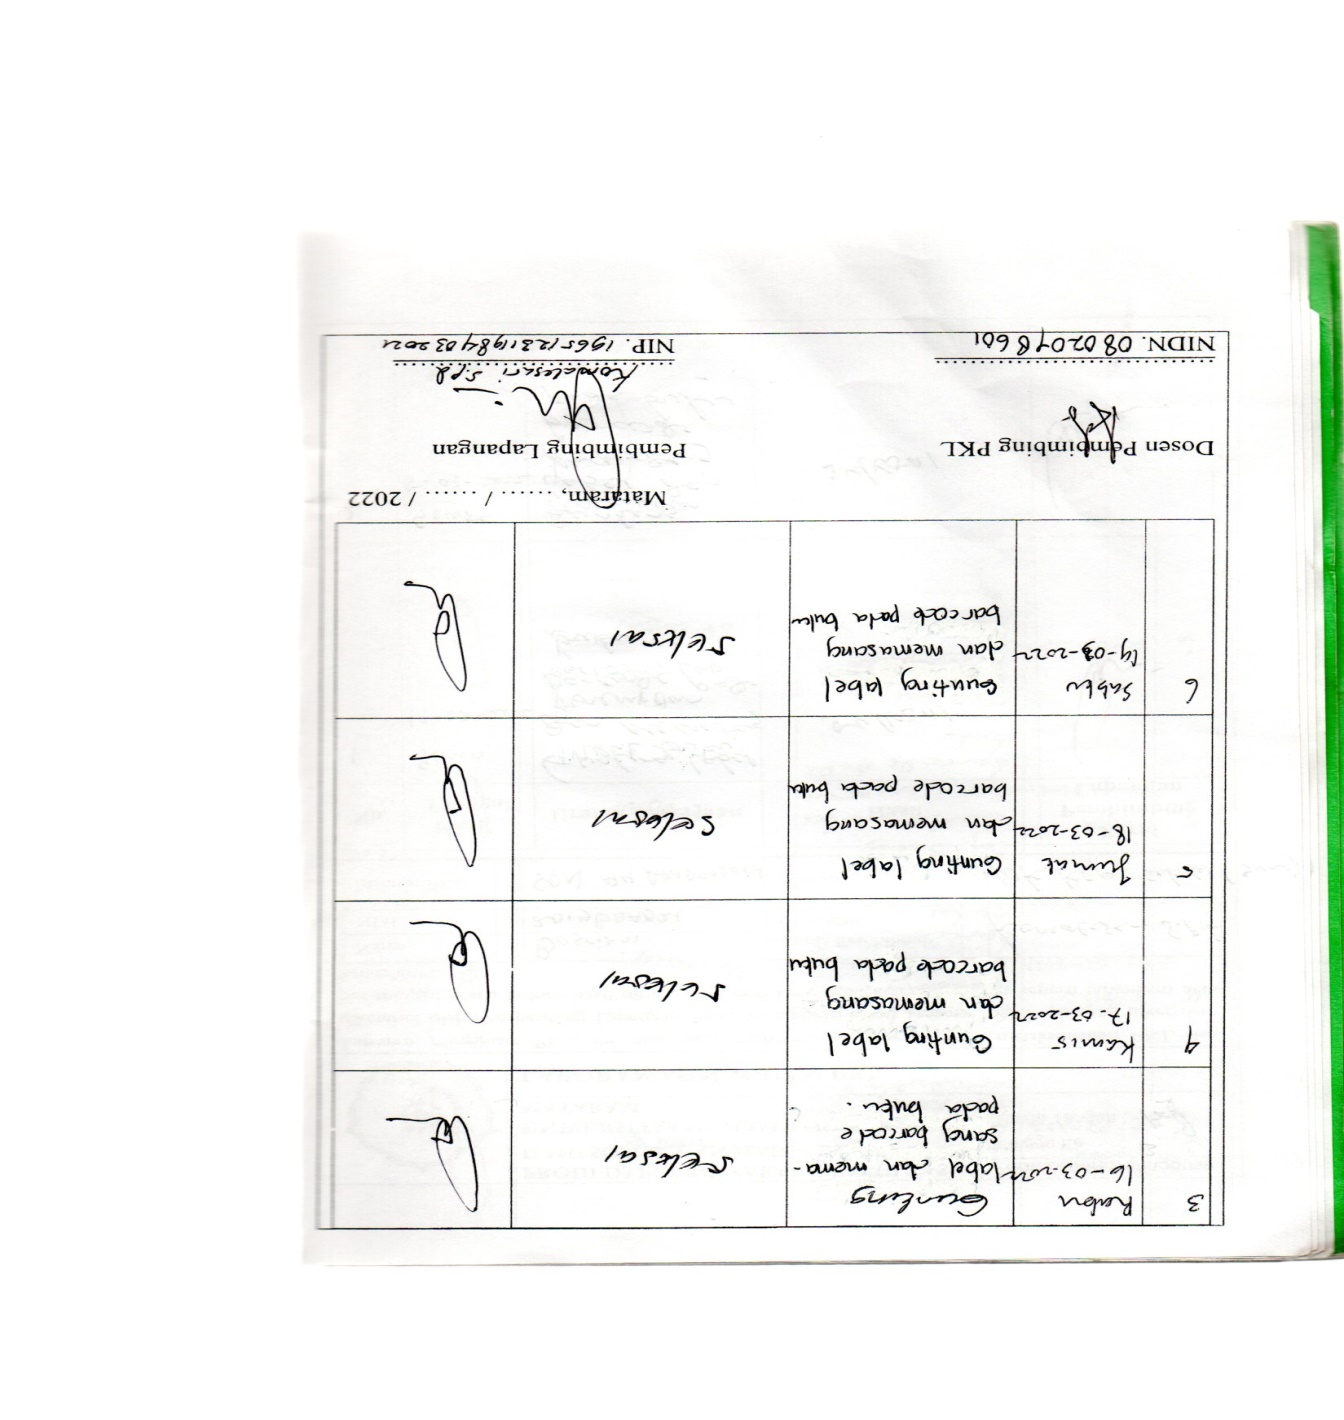 3
Rabu
16-03-2022
Gunting
label dan mema-
sang barcode
pada buku.
Selesai
4
Kamis
17-03-2022
Gunting label
dan memasang
barcode pada buku
Selesai
5
Jumat
18-03-2022
Gunting label
dan memasang
barcode pada buku
Selesai
6
Sabtu
19-03-2022
Gunting label
dan memasang
barcode pada buku
Selesai
Mataram, ...... / ...... / 2022
Dosen Pembimbing PKL
Pembimbing Lapangan
Komalasari S.Pd
NIDN. 0802048601
NIP. 196512311984032021